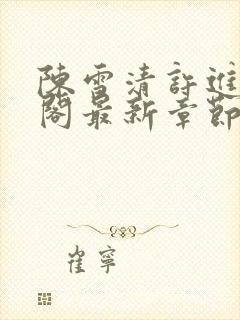 陳雪清許進
閣最新章節
崔寧